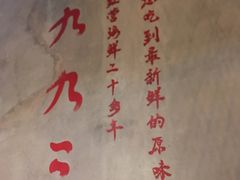 吃到最新鲜的原味
经营海鲜二十多年
九九二